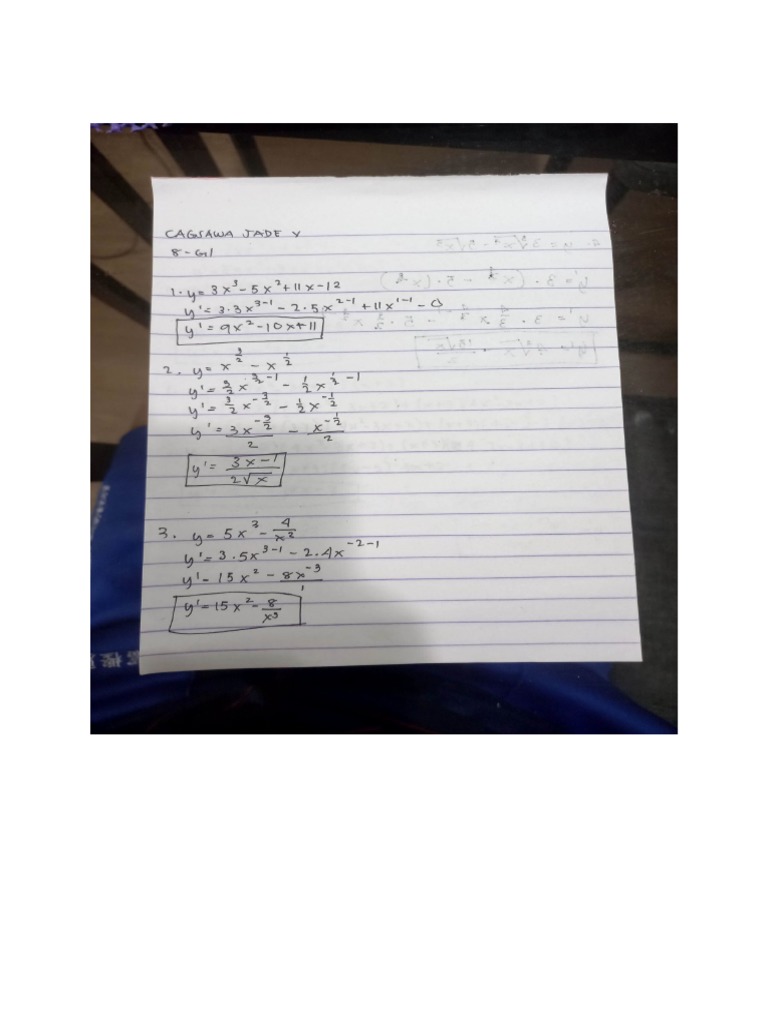 CAGSAWA JADE Y
8-G1
1. y = 3x³ - 5x² + 11x - 12
y' = 3·3x³⁻¹ - 2·5x²⁻¹ + 11x¹⁻¹ - 0
y' = 9x² - 10x + 11
2. y = x^(3/2) - x^(1/2)
y' = 3/2 x^(3/2 - 1) - 1/2 x^(1/2 - 1)
y' = 3/2 x^(-3/2) - 1/2 x^(-1/2)
y' = 3x^(-3/2)/2 - x^(-1/2)/2
y' = (3x-1)/(2√x)
3. y = 5x³ - 4/x²
y' = 3·5x³⁻¹ - 2·4x⁻²⁻¹
y' = 15x² - 8x⁻³/1
y' = 15x² - 8/x³